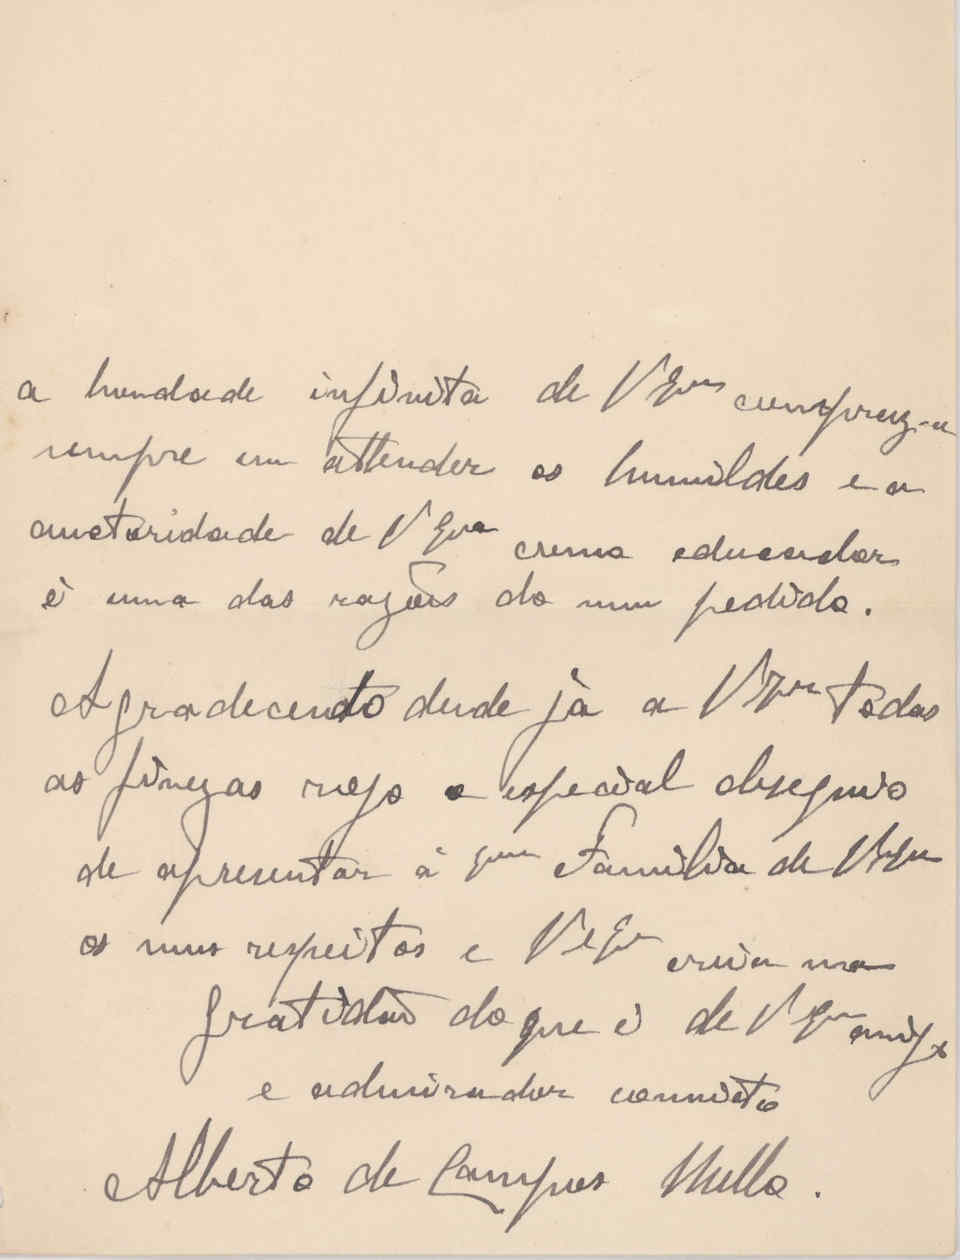 a bondade infinita de V Exª compraz-a
sempre em attender os humildes e a
auctoridade de V Exª como educador
é uma das razões do meu pedido.
Agradecendo desde já a V Exª todas
as finezas rogo o especial obsequio
de apresentar á Exma Familia de V Exª
os meus respeitos e V Exª creia na
gratidão do que é de V Exª amigo
e admirador convicto
Alberto de Campos Mello.